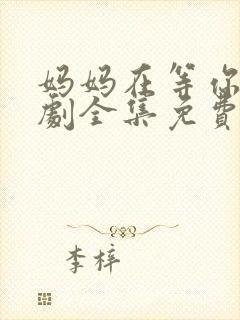 妈妈在等你
劇全集免費
李梓